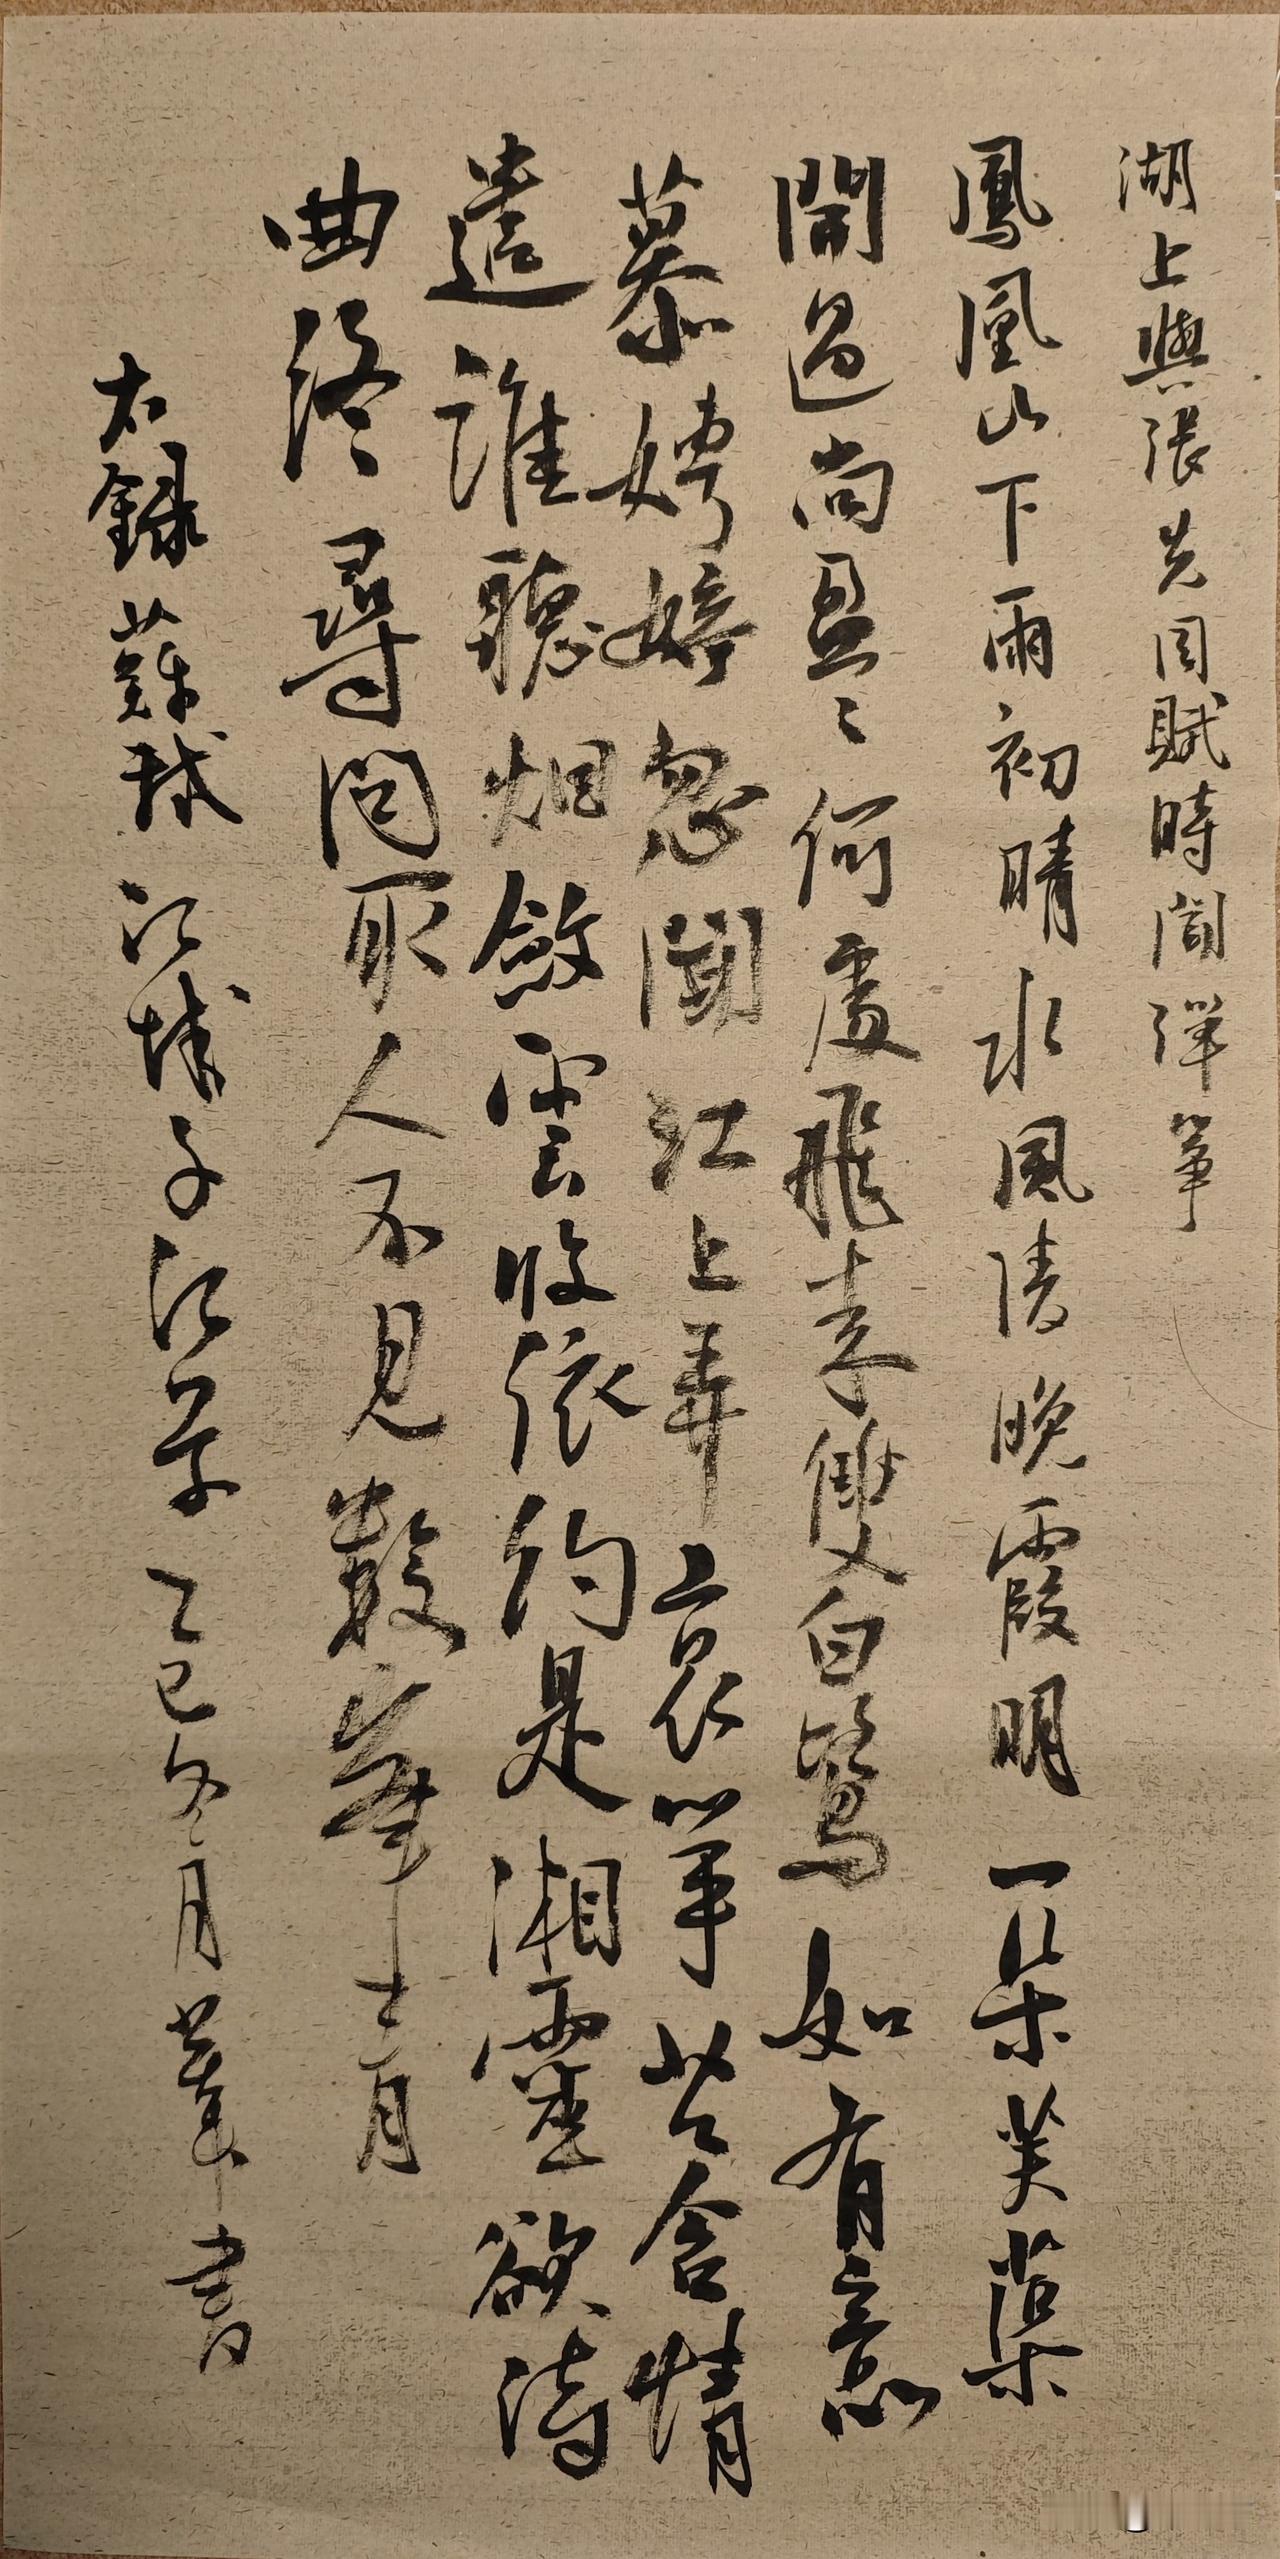 湖上與張先同賦時聞彈箏
鳳凰山下雨初晴水風清晚霞明一朵芙蕖
開過尚盈〻何處飛來雙白鷺如有意
慕娉婷忽聞江上弄哀箏苦含情
遣誰聽烟斂雲收依約是湘靈欲待
曲終尋問取人不見數峯青
右録蘇軾江城子江景乙巳冬月書